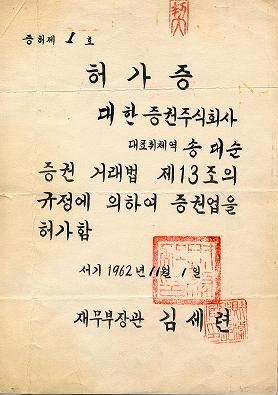 증허제 1 호
허가증
대한증권주식회사
대표취체역 송대순
증권 거래법 제13조의
규정에 의하여 증권업을
허가함
서기 1962년 11월 1일
재무부장관 김세련